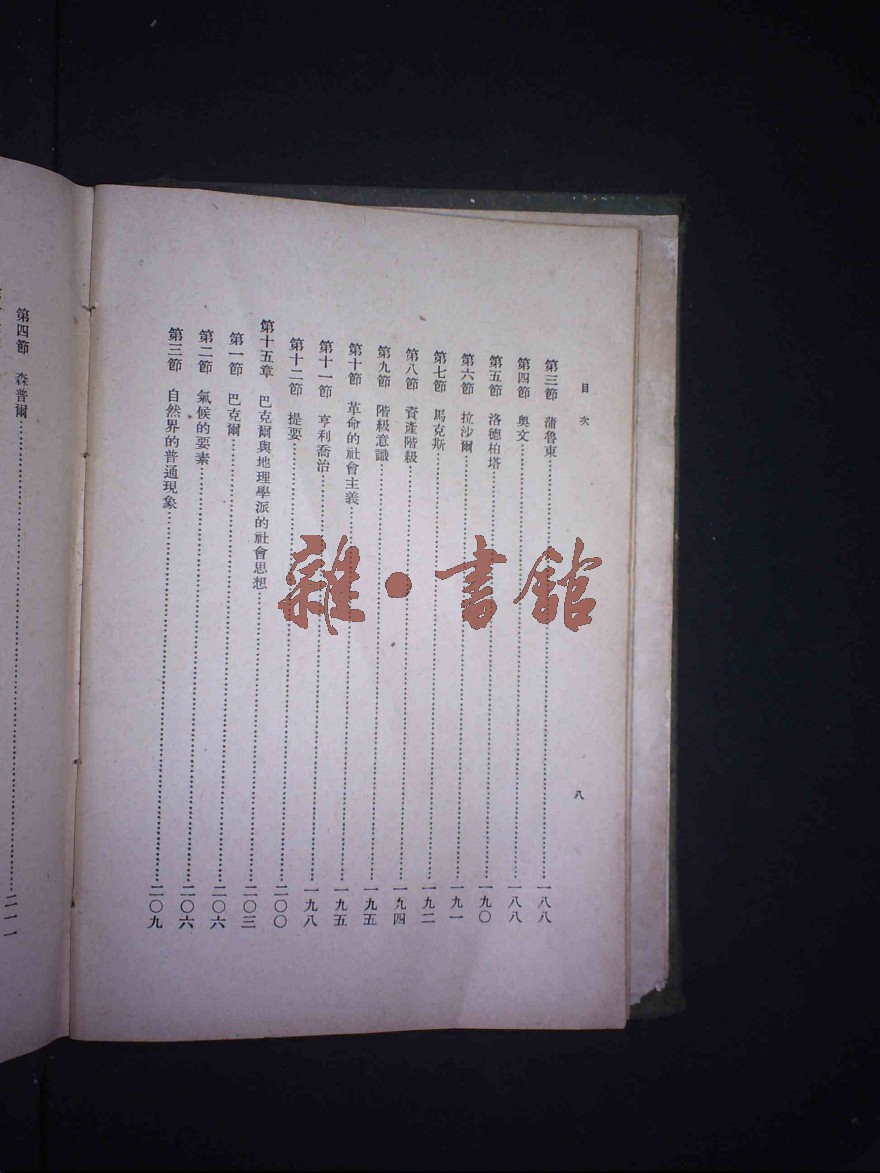 目次
八
第三節 蒲魯東……一八八
第四節 奧文……一八八
第五節 洛德柏塔……一九〇
第六節 拉沙爾……一九一
第七節 馬克斯……一九二
第八節 資產階級……一九四
第九節 階級意識……一九五
第十節 革命的社會主義……一九五
第十一節 亨利喬治……一九八
第十二節 提要……二〇〇
第十五章 巴克爾與地理學派的社會思想……二〇三
第一節 巴克爾……二〇六
第二節 氣候的要素……二〇六
第三節 自然界的普通現象……二〇九
第四節 森普爾……二一一
雜·書館